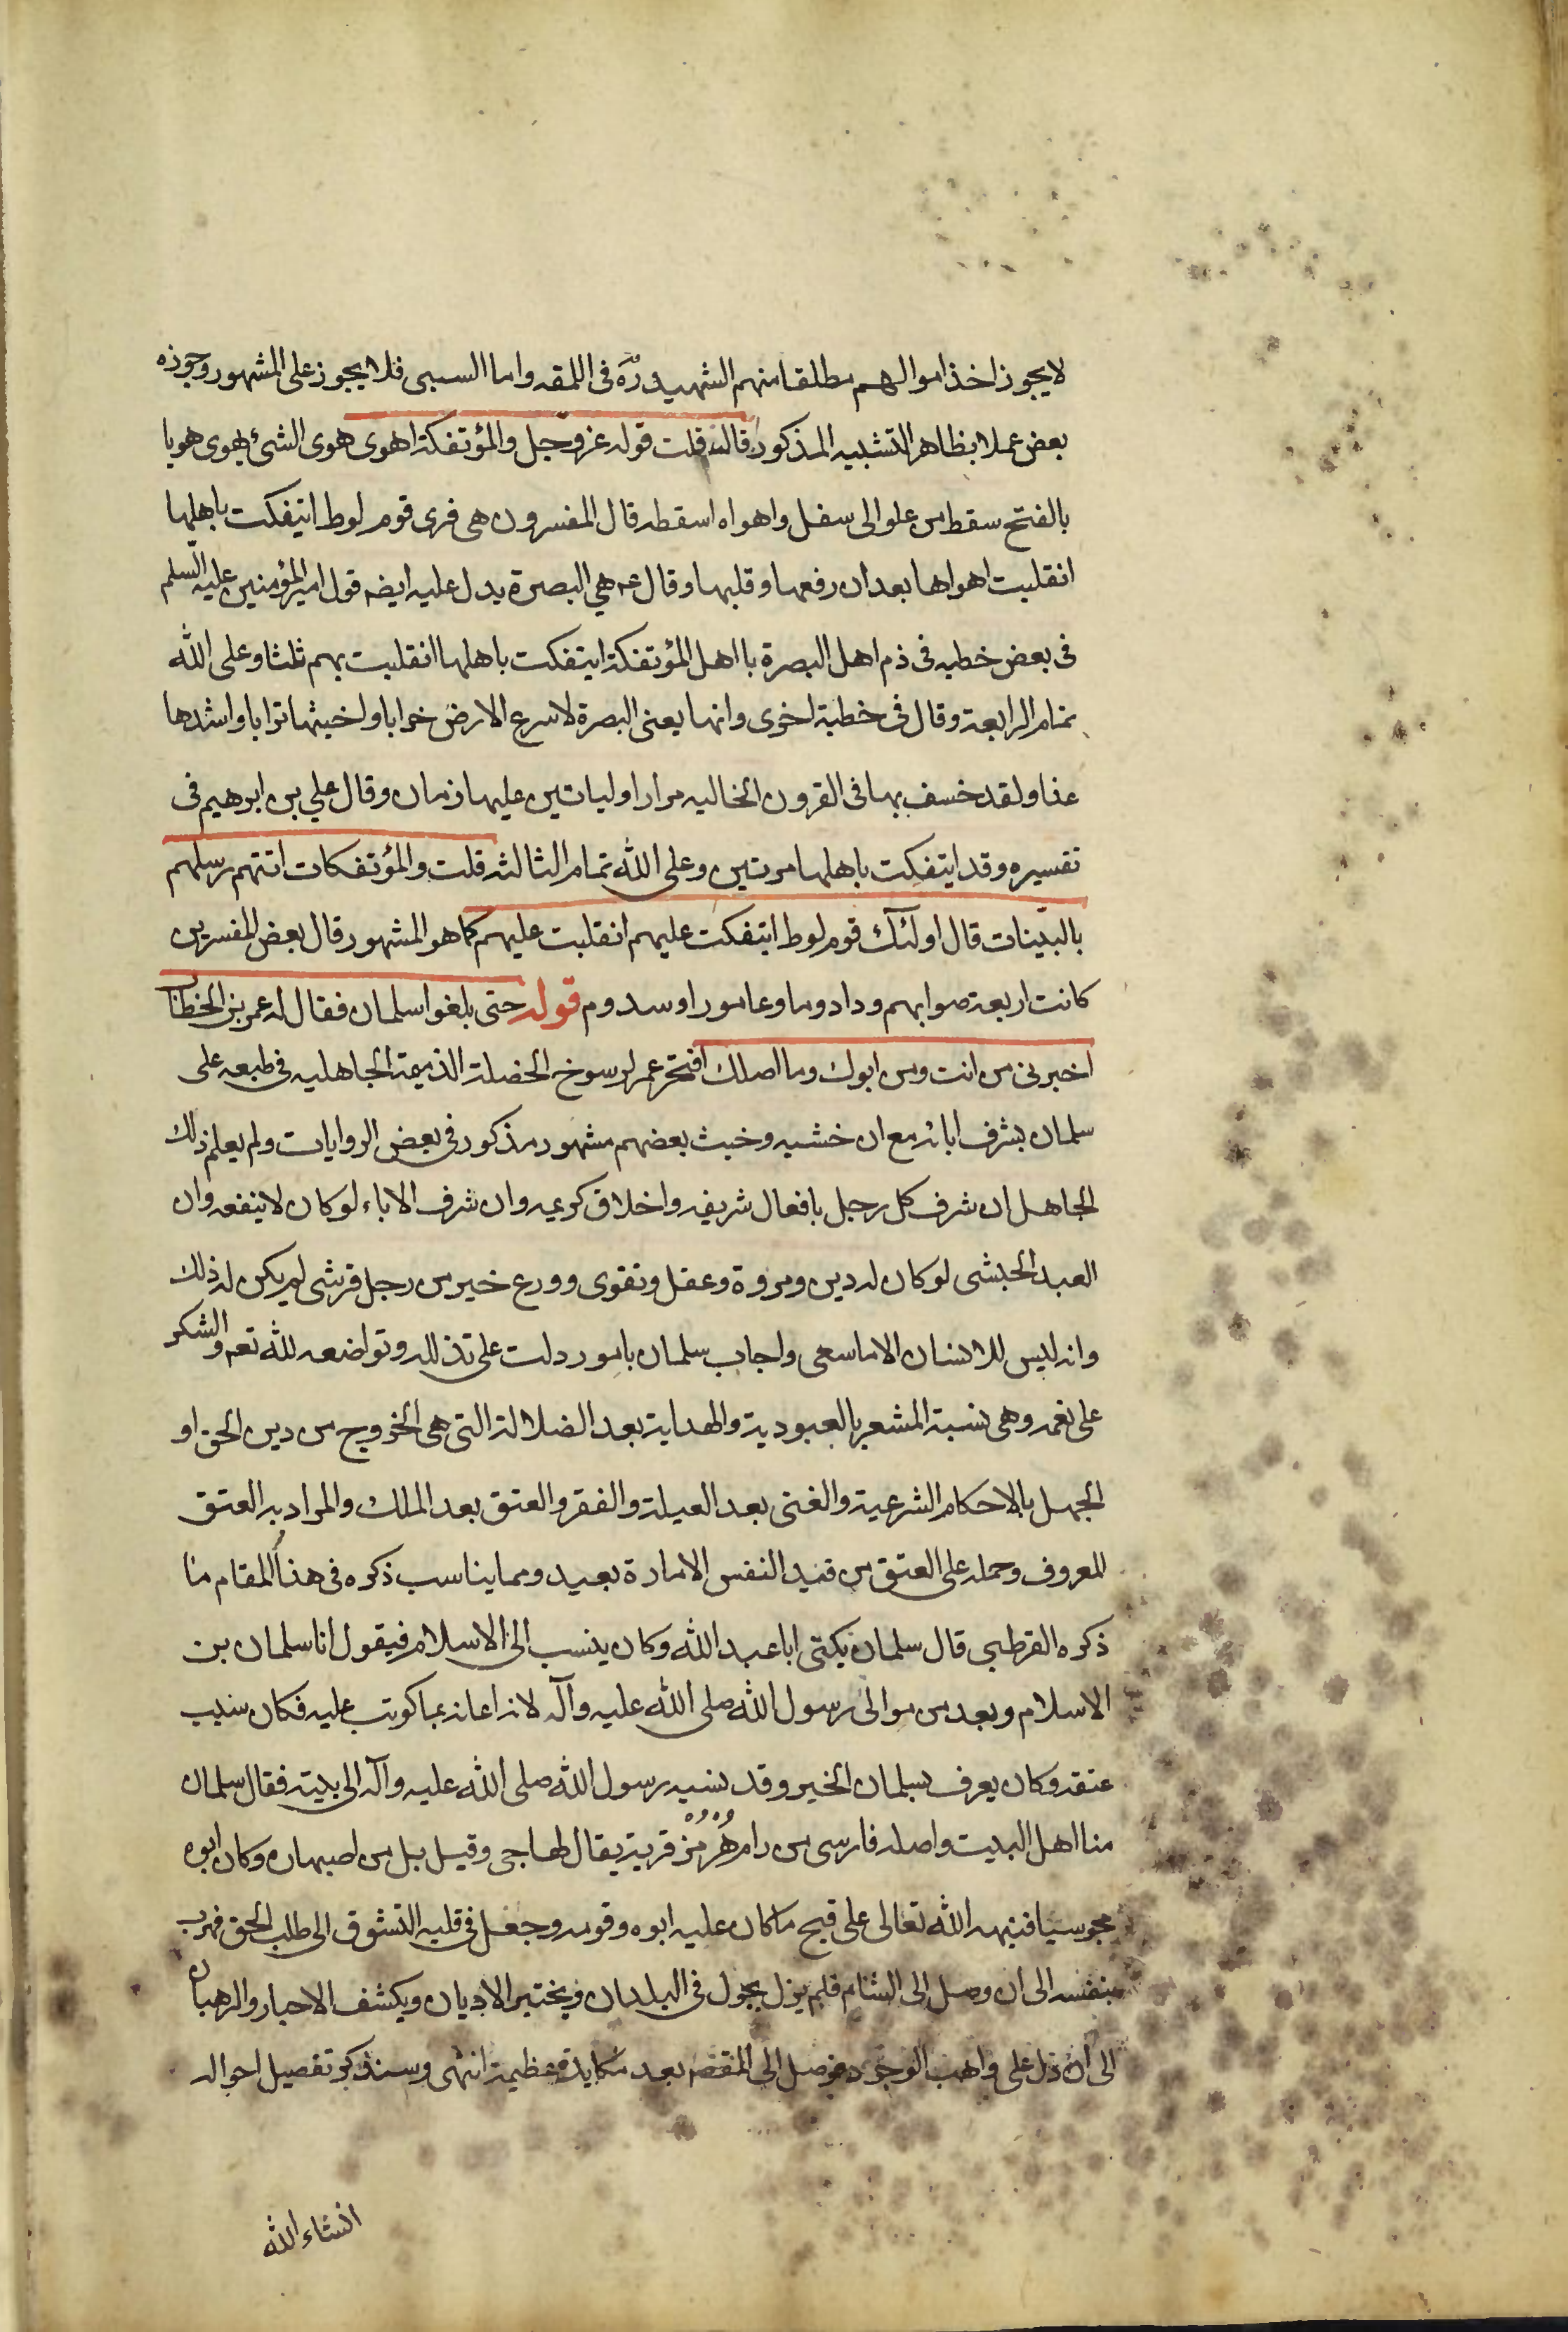 لا يجوز اخذ اموالهم مطلقا منهم الشهيد ره فى اللمعه واما السبى فلا يجوز على المشهور وجوزه
بعض عملا بظاهر التشبيه المذكور قال قلت قوله عز وجل والمؤتفكة اهوى هوى الشئ يهوى هويا
بالفتح سقط من علو الى سفل واهواه اسقطه قال المفسرون هى قرى قوم لوط ايتفكت باهلها
انقلبت اهواها بعد ان رفعها وقلبها وقال ع هي البصرة يدل عليه ايضه قول امير المؤمنين عليه السلم
فى بعض خطبه فى ذم اهل البصرة يا اهل المؤتفكة ايتفكت باهلها انقلبت بهم ثلثا وعلى الله
تمام الرابعة وقال فى خطبة اخرى وانها يعنى البصرة لاسرع الارض خرابا واخبثها ترابا واشدها
عذابا ولقد خسف بها فى القرون الخاليه مرارا وليات ين عليها زمان وقال علي بن ابرهيم فى
تفسيره وقد ايتفكت باهلها مرتين وعلى الله تمام الثالثه قلت والمؤتفكات اتتهم رسلهم
بالبينات قال اولئك قوم لوط ايتفكت عليهم انقلبت عليهم كما هو المشهور قال بعض المفسرين
كانت اربعة صوابهم ودادوما وعامورا وسدوم قوله حتى بلغوا سلمان فقال له عمر بن الخطاب
اخبرنى من انت ومن ابوك وما اصلك افتخر عمر لرسوخ الخصلة الذميمة الجاهليه فى طبعه على
سلمان بشرف ابائه مع ان خشيه وخبث بعضهم مشهور مذكور فى بعض الروايات ولم يعلم ذلك
الجاهل ان شرف كل رجل بافعال شريفه واخلاق كريمه وان شرف الاباء لو كان لا ينفعه وان
العبد الحبشى لو كان له دين ومروة وعقل وتقوى وورع خير من رجل قرشى لم يكن له ذلك
وانه ليس للانسان الا ما سعى واجاب سلمان بامور دلت على تذلله وتواضعه لله تعه والشكر
على نعمه وهى نسبة المشعر بالعبودية والهداية بعد الضلالة التى هى الخروج من دين الحق او
الجهل بالاحكام الشرعية والغنى بعد العيلة والفقر والعتق بعد الملك والمراد به العتق
المعروف وحمله على العتق من قيد النفس الامارة بعيد ومما يناسب ذكره فى هذا المقام ما
ذكره القرطبى قال سلمان يكنى ابا عبد الله وكان ينسب الى الاسلام فيقول انا سلمان بن
الاسلام ويعد من موالى رسول الله صلى الله عليه وآله لانه اعانه بما كوتب عليه فكان سبب
عتقه وكان يعرف بسلمان الخير وقد نسبه رسول الله صلى الله عليه وآله الى بيته فقال سلمان
منا اهل البيت واصله فارسى من رام هُرمُز قرية يقال لها جى وقيل بل من اصبهان وكان ابوه
مجوسيا فنبهه الله تعالى على قبح ما كان عليه ابوه وقومه وجعل فى قلبه التشوق الى طلب الحق فهرب
بنفسه الى ان وصل الى الشام فلم يزل يجول فى البلدان ويختبر الاديان ويكشف الاحبار والرهبان
الى ان دل على واهب الوجود فوصل الى المقصد بعد مكايدة عظيمة انتهى وسنذكر تفصيل احواله
انشاء الله